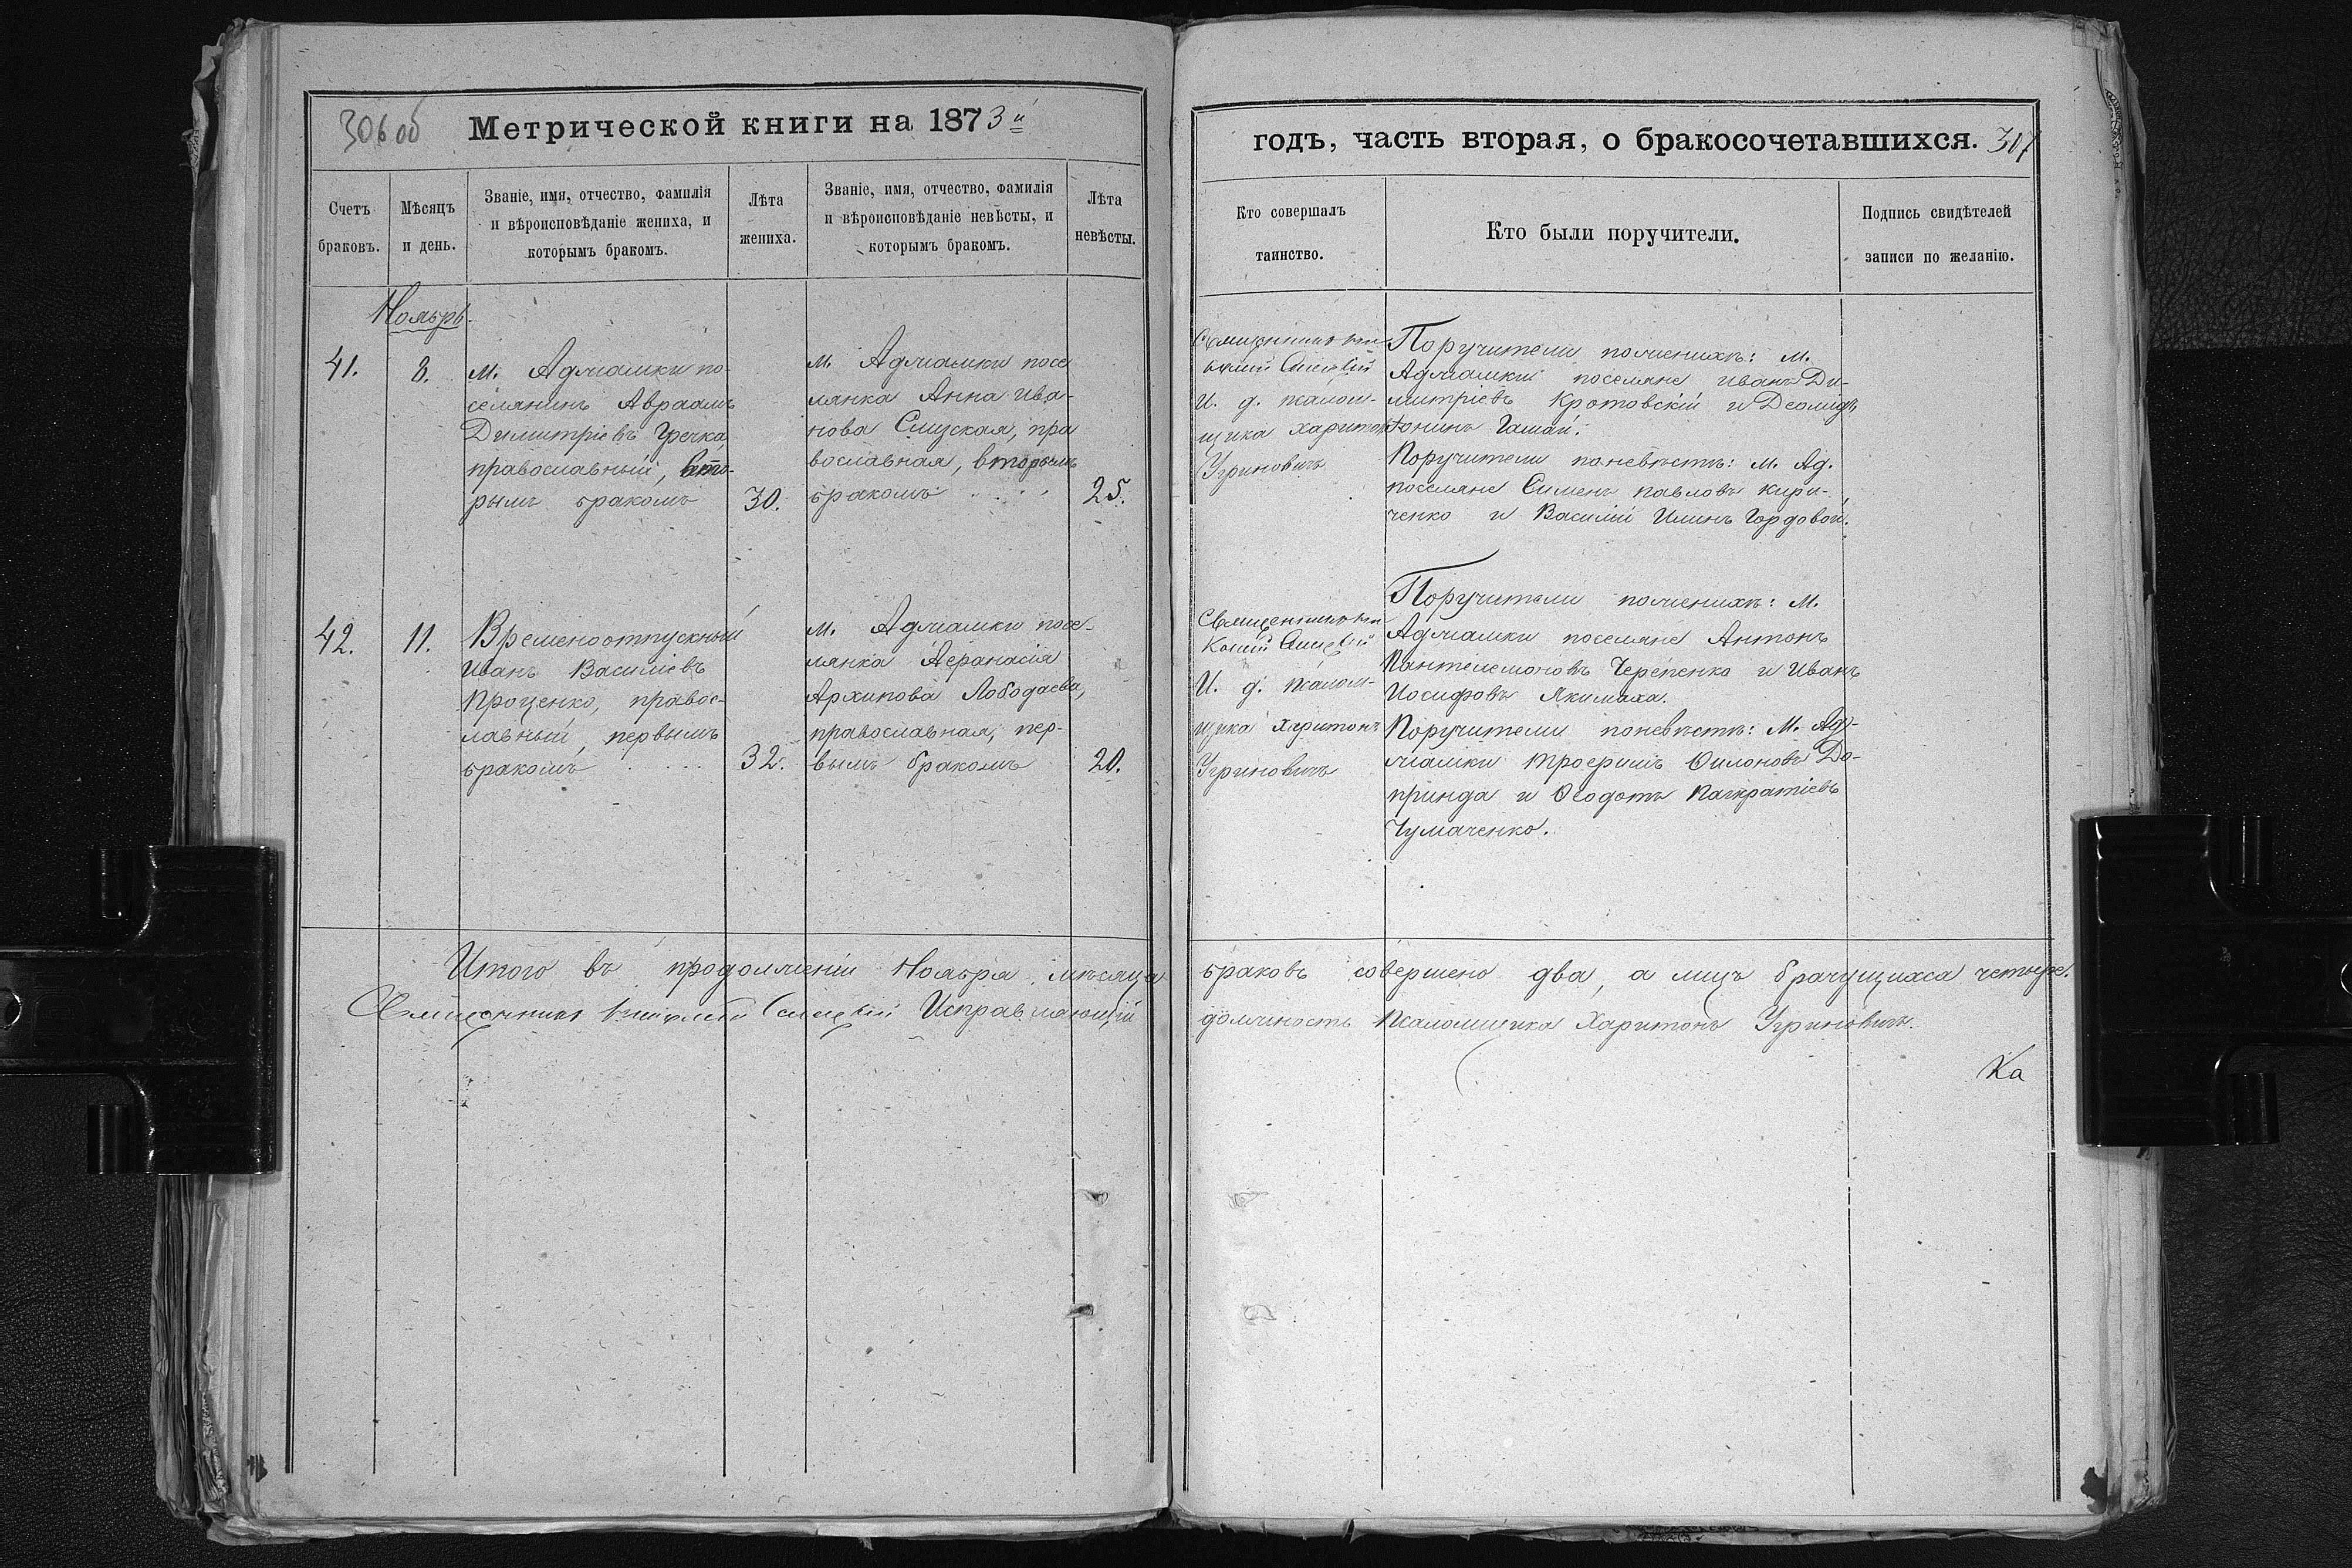 306 об
Метрической книги на 1873й
Счетъ браковъ.
Мѣсяцъ и день.
Званіе, имя, отчество, фамилія и вѣроисповѣданіе жениха, и которымъ бракомъ.
Лѣта жениха.
Званіе, имя, отчество, фамилія и вѣроисповѣданіе невѣсты, и которымъ бракомъ.
Лѣта невѣсты.
Ноябрь.
41.
8.
м. Аджамки по-
селянинъ Авраамъ
Димитріевъ Гречка
православный, вто-
рымъ бракомъ
30.
м. Аджамки посе
лянка Анна Ива-
нова Слуцкая, пра
вославная, вторымъ
бракомъ . . . .
25.
42.
11.
Временоотпускный
Иванъ Василіевъ
Проценко, правос-
лавный, первымъ
бракомъ . . . .
32.
м. Аджамки посе-
лянка Афанасія
Архипова Лободаева,
православная, пер-
вымъ бракомъ
20.
Итого въ продолженіи Ноября мѣсяца
Священникъ Исправляющій
годъ, часть вторая, о бракосочетавшихся. 307
Кто совершалъ таинство.
Кто были поручители.
Подпись свидѣтелей записи по желанію.
Священникъ
И. д. псалом-
щика Харитонъ
Угриновичъ
Поручители пожениху: м.
Аджамки поселяне Иванъ Ди-
митріевъ Кротовскій и Деомидъ
Іонинъ Гашай.
Поручители поневѣстѣ: м. Ад.
поселяне Сименъ Павловъ Кири-
ченко и Василій Илинъ Гордовой.
Священникъ
И. д. псалом-
щика Харитонъ
Угриновичъ
Поручители пожениху: м.
Аджамки поселяне Антонъ
Пантелемоновъ Черепенко и Иванъ
Иосифовъ Якимаха.
Поручители поневѣстѣ: м. Ад-
жамки Трофимъ Филоновъ До-
принда и Ѳеодотъ Панкратіевъ
Чумаченко.
браковъ совершено два, а лицъ брачущихса четыре.
должность Псаломщика Харитонъ Угриновичъ.
Ка